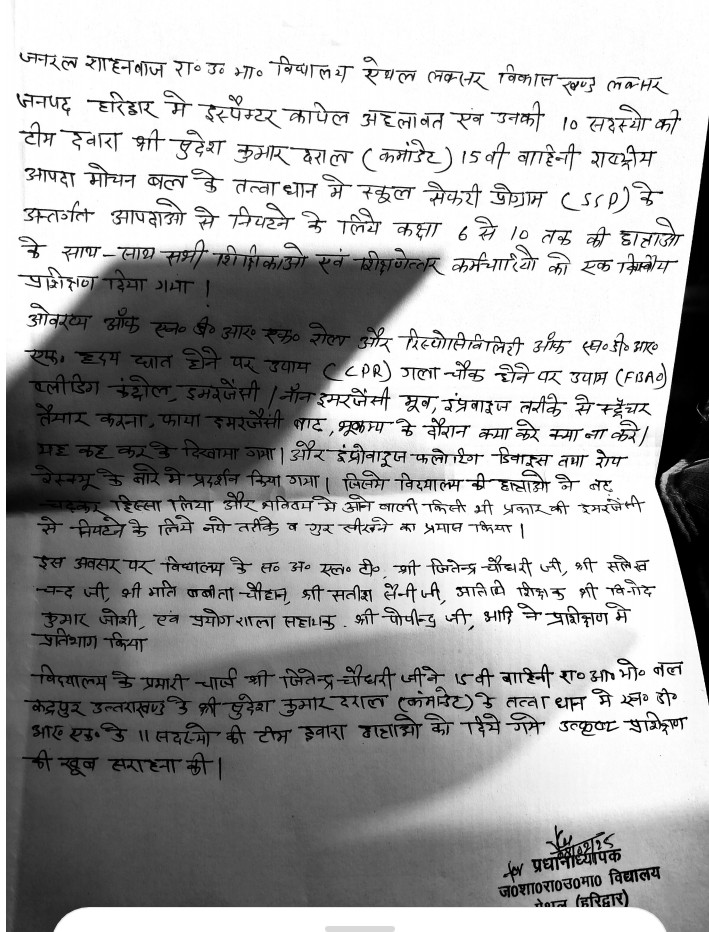 जनरल शाहनवाज रा० उ० मा० विद्यालय ऐथल लक्सर विकास खण्ड लक्सर
जनपद हरिद्वार मे इंस्पैक्टर कपिल अहलावत एंव उनकी 10 सदस्यो की
टीम दवारा श्री सुदेश कुमार दराल (कमांडेट) 15 वी वाहिनी राष्ट्रीय
आपदा मोचन बल के तत्वाधान मे स्कूल सेफटी प्रोग्राम (SSP) के
अन्तर्गत आपदाओ से निपटने के लिये कक्षा 6 से 10 तक की छात्राओ
के साथ-साथ सभी शिक्षिकाओ एवं शिक्षणेत्तर कर्मचारियो को एक दिवसीय
प्रशिक्षण दिया गया।
ओवरव्यू ऑफ एन० डी० आर० एफ० रोल और रिस्पोंसिबिलिटी ऑफ एन० डी० आर०
एफ०, हृदय घात होने पर उपाय (CPR) गला चौक होने पर उपाय (FBAO)
ब्लीडिंग कंट्रोल, इमरजेंसी / नॉन इमरजेंसी मूव, इंप्रवाइज तरीके से स्ट्रेचर
तैयार करना, फायर इमरजेंसी, भूकम्प के दौरान क्या करे क्या ना करे।
यह कह कर के दिखाया गया। और इंप्रोवाइज फ्लोटिंग डिवाइस तथा रोप
रेस्क्यू के बारे मे प्रदर्शन किया गया। जिसमे विद्यालय की छात्राओ ने बढ़
चढ़कर हिस्सा लिया और भविष्य मे आने वाली किसी भी प्रकार की इमरजेंसी
से निपटने के लिये नये तरीके व गुर सीखने का प्रयास किया।
इस अवसर पर विद्यालय के स० अ० एल० टी० श्री जितेन्द्र चौधरी जी, श्री सलेख
चन्द जी, श्री मति बबीता चौहान, श्री सतीश सैनी जी, अतिथि शिक्षक श्री विनोद
कुमार जोशी, एवं प्रयोगशाला सहायक श्री पोपीन्द्र जी, आदि ने प्रशिक्षण मे
प्रतिभाग किया
विद्यालय के प्रभारी चार्ज श्री जितेन्द्र चौधरी जी ने 15 वी वाहिनी रा० आ० मो० बल
रूद्रपुर उत्तराखण्ड के श्री सुदेश कुमार दराल (कमांडेट) के तत्वाधान मे एन० डी०
आर० एफ० के 11 सदस्यो की टीम द्वारा छात्राओ को दिये गये उत्कृष्ट प्रशिक्षण
की खूब सराहना की।
for प्रधानाध्यापक
ज०शा०रा०उ०मा० विद्यालय
(हरिद्वार)